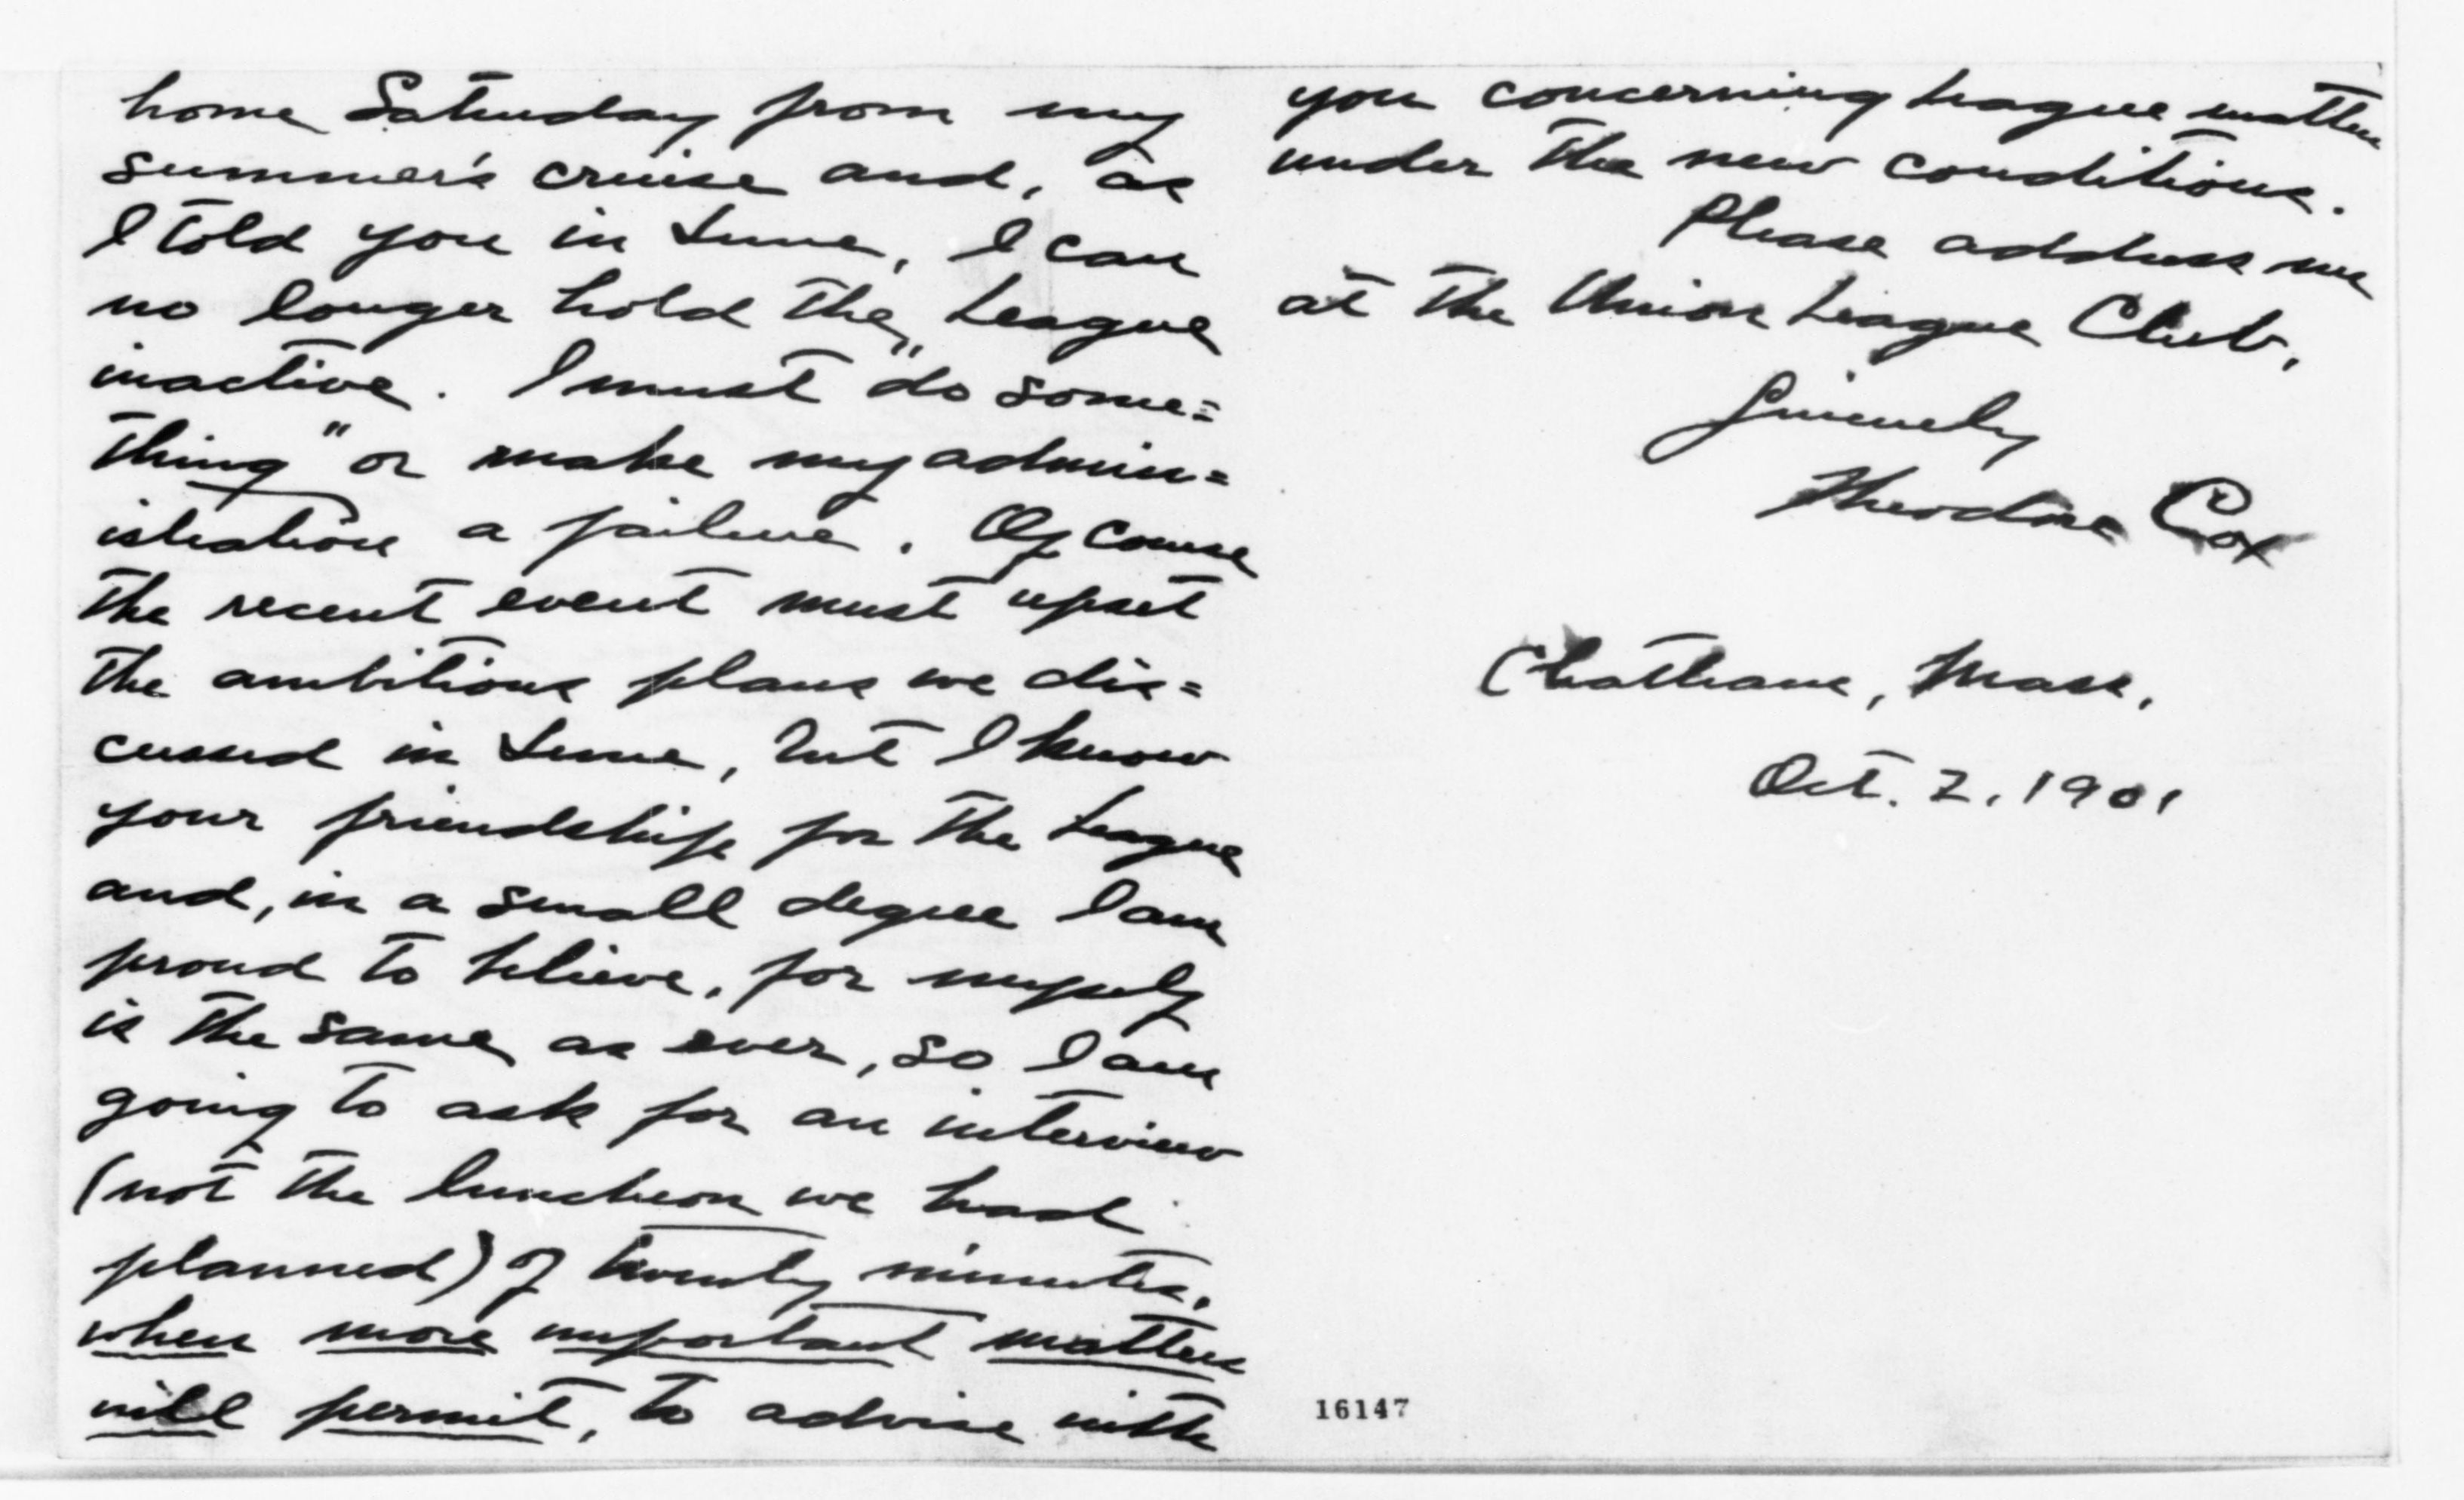 home Saturday from my
summer's cruise and, as
I told you in June, I can
no longer hold the League
inactive. I must "do some=
thing" or make my admin=
istration a failure. Of course
the recent event must upset
the ambitious plans we dis=
cussed in June, but I know
your friendship for the League
and, in a small degree I am
proud to believe, for myself
is the same as ever, so I am
going to ask for an interview
(not the luncheon we had
planned) of twenty minutes,
when more important matters
will permit, to advise with
you concerning League matters
under the new conditions.
Please address me
at the Union League Club.
Sincerely
Theodore Cox
Chatham, Mass.
Oct. 2, 1901
16147